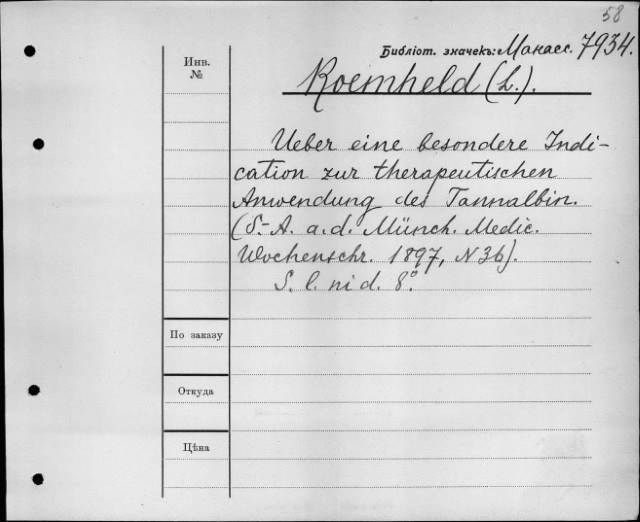 58
Библіот. значекъ: Манасс. 7934.
Инв.
№
Roemheld (L.).
Ueber eine besondere Indi-
cation zur therapeutischen
Anwendung des Tannalbin.
(S.-A. a. d. Münch. Medic.
Wochenschr. 1897, N 36).
S. l. ni d. 8°.
По заказу
Откуда
Цѣна